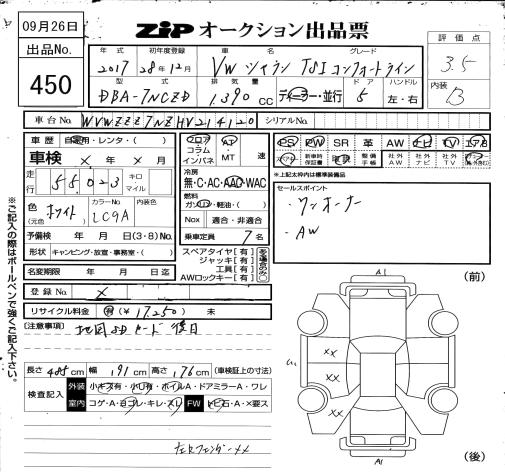 09月26日
出品No.
450
ZIP オークション出品票
年式 初年度登録 車名 グレード
2017 28年12月 VW シャラン TSI コンフォートライン
型式 排気量 ドア ハンドル
DBA-7NCZD 1,390 cc ディーラー・並行 5 左・右
評価点
3.5
内装
B
車台No. WVWZZZ7NZHV214120 シリアルNo.
車歴 自家用・レンタ・( )
車検 × 年 × 月
走行 55,023 キロ マイル
色(元色) ホワイト カラーNo. LC9A 内装色
予備検 年 月 日(3・8) No.
形状 キャンピング・放宣・事務室・( )
名変期限 年 月 日迄
登録No. ×
リサイクル料金 有(¥17,250) 未
フロア コラム インパネ AT・MT 速
冷房 無・C・AC・AAC・WAC
燃料 ガソリン・軽油・( )
Nox 適合・非適合
乗車定員 7 名
スペアタイヤ[有]
ジャッキ[有]
工具[有]
AWロックキー[有]
PS PW SR 革 AW ナビ TV
新車時保証書 取説 整備手帳 社外AW 社外ナビ 社外TV
※上記太枠内は標準装備品
セールスポイント
・ワンオーナー
・AW
[注意事項] 地図SDカード後日
長さ 485cm 幅 191cm 高さ 176cm (車検証上の寸法)
検査記入 外装 小キズ有・小凹有・ホイルA・ドアミラーA・ワレ
室内 コゲ・A・ヨゴレ・キレ・スレ FW トビ石・A・×要ス
左右フェンダーメメ
(前)
A1
××
××
××
A1
(後)
※ご記入の際はボールペンで強くご記入下さい。